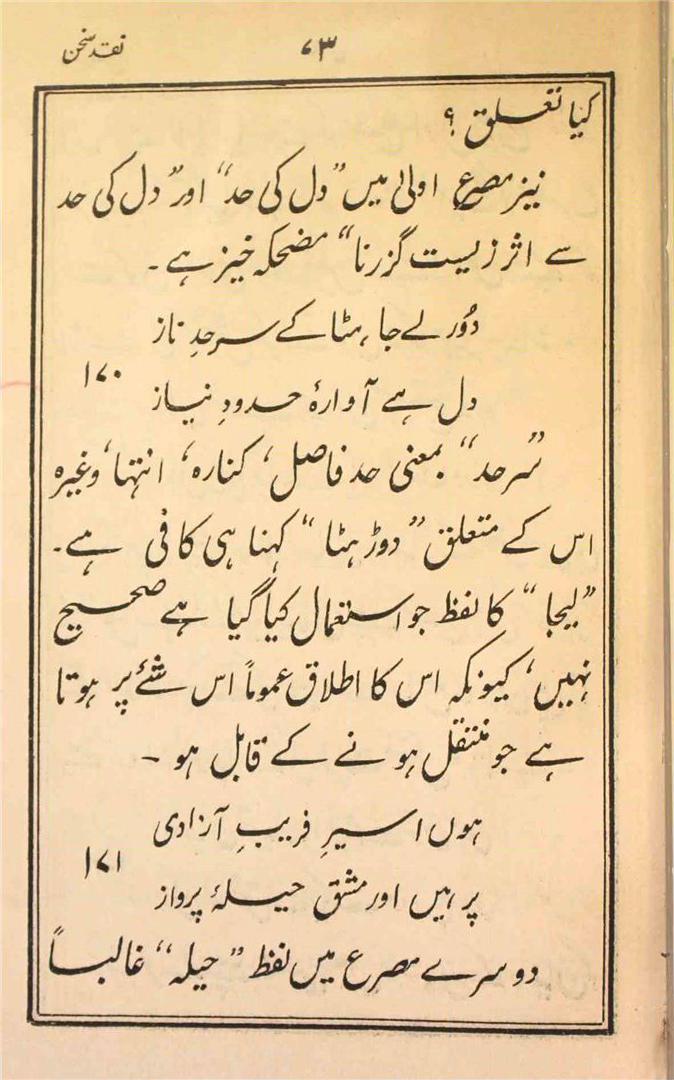 نقد سخن
۷۳
کیا تعلق ؟
نیز مصرع اولیٰ میں ”دل کی حد“ اور ”دل کی حد
سے اثر زیست گزرنا“ مضحکہ خیز ہے۔
دُور لے جا ، ہٹا کے سرحدِ ناز
۱۷۰
دل ہے آوارۂ حدودِ نیاز
”سرحد“ بمعنی حد فاصل، کنارہ، انتہا، وغیرہ
اس کے متعلق ”دوڑ ہٹا“ کہنا ہی کافی ہے۔
”لیجا“ کا لفظ جو استعمال کیا گیا ہے صحیح
نہیں، کیونکہ اس کا اطلاق عموماً اس شئے پر ہوتا
ہے جو منتقل ہونے کے قابل ہو ۔
ہوں اسیرِ فریبِ آزادی
۱۷۱
پر ہیں اور مشق حیلۂ پرواز
دوسرے مصرع میں لفظ ”حیلہ“ غالباً